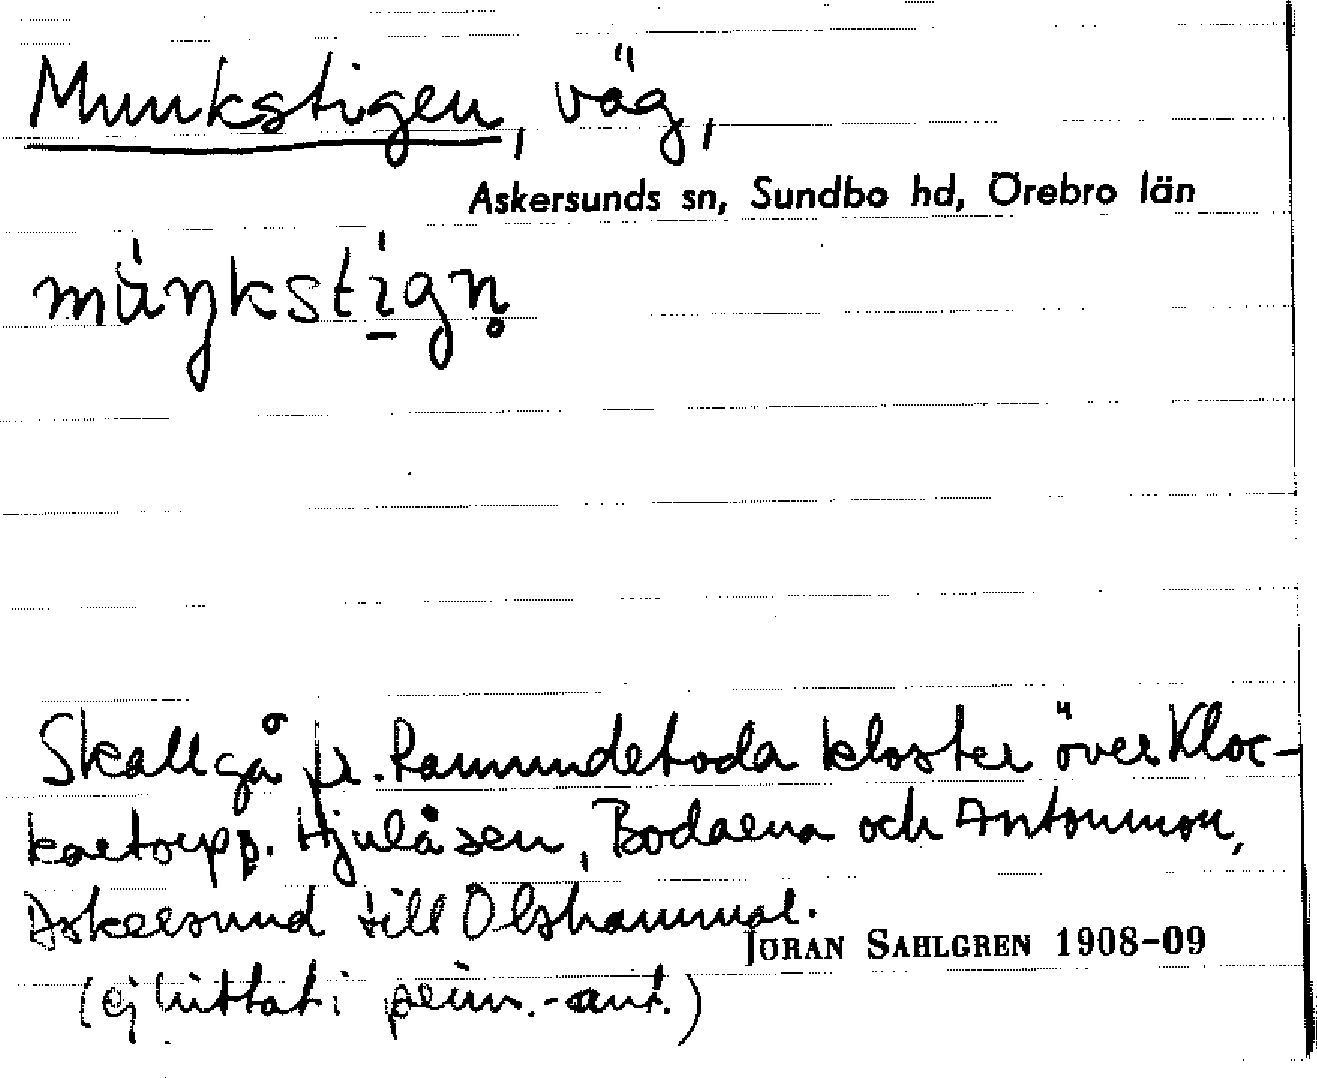 Munkstigen, väg,
Askersunds sn, Sundbo hd, Örebro län
mu̇ŋkstı̱gn̥
Skall gå fr. Ramundeboda kloster över Kloc-
karetorpp. Hjulåsen, Bodarna och Antonmon,
Askersund till Olshammar.
JÖRAN SAHLGREN 1908-09
(ej hittat i prim.-ant.)